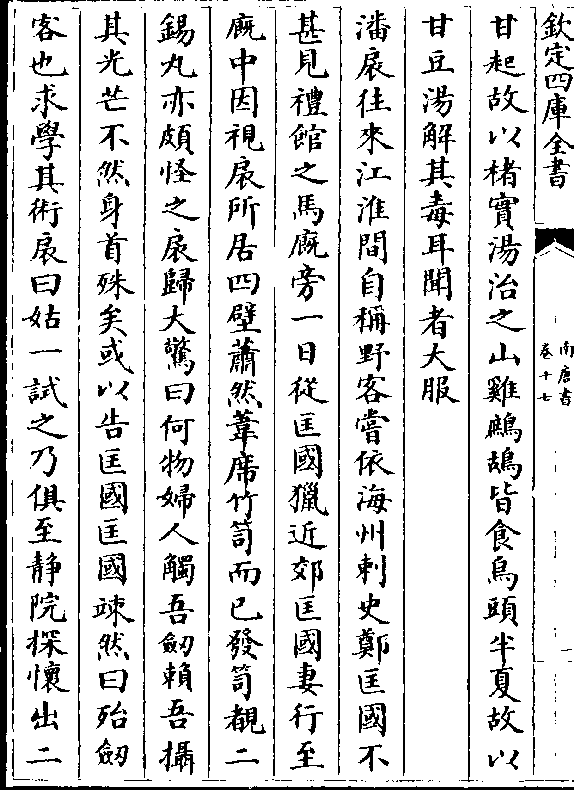 欽定四庫全書
南唐書
卷十七
甘起故以楮實湯治之山雞鷓鴣皆食烏頭半夏故以
甘豆湯解其毒耳聞者大服
潘扆往來江淮間自稱野客嘗依海州刺史鄭匡國不
甚見禮館之馬廐旁一日從匡國獵近郊匡國妻行至
廐中因視扆所居四壁蕭然葦席竹笥而已發笥覩二
錫丸亦頗怪之扆歸大驚曰何物婦人觸吾劒賴吾攝
其光芒不然身首殊矣或以告匡國匡國竦然曰殆劒
客也求學其術扆曰姑一試之乃俱至静院探懷出二